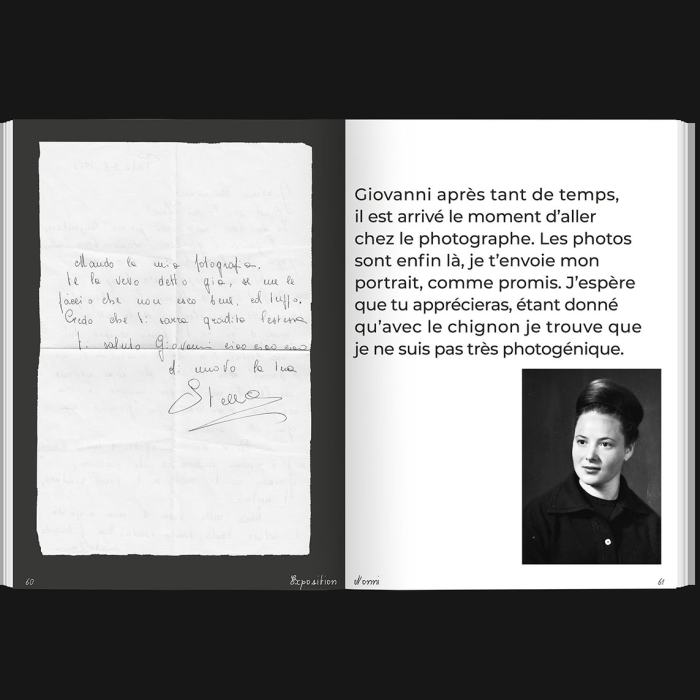 Mando la mia fotografia.
te la vevo detto gia, se me le
faccio che non esco bene, ed tuffo.
Credo che ti sarra gradita l'estessa
ti saluto Giovanni ciao ciao ciao
di nuovo la tua
Stella
60
Exposition
Giovanni après tant de temps,
il est arrivé le moment d'aller
chez le photographe. Les photos
sont enfin là, je t'envoie mon
portrait, comme promis. J'espère
que tu apprécieras, étant donné
qu'avec le chignon je trouve que
je ne suis pas très photogénique.
Nonni
61